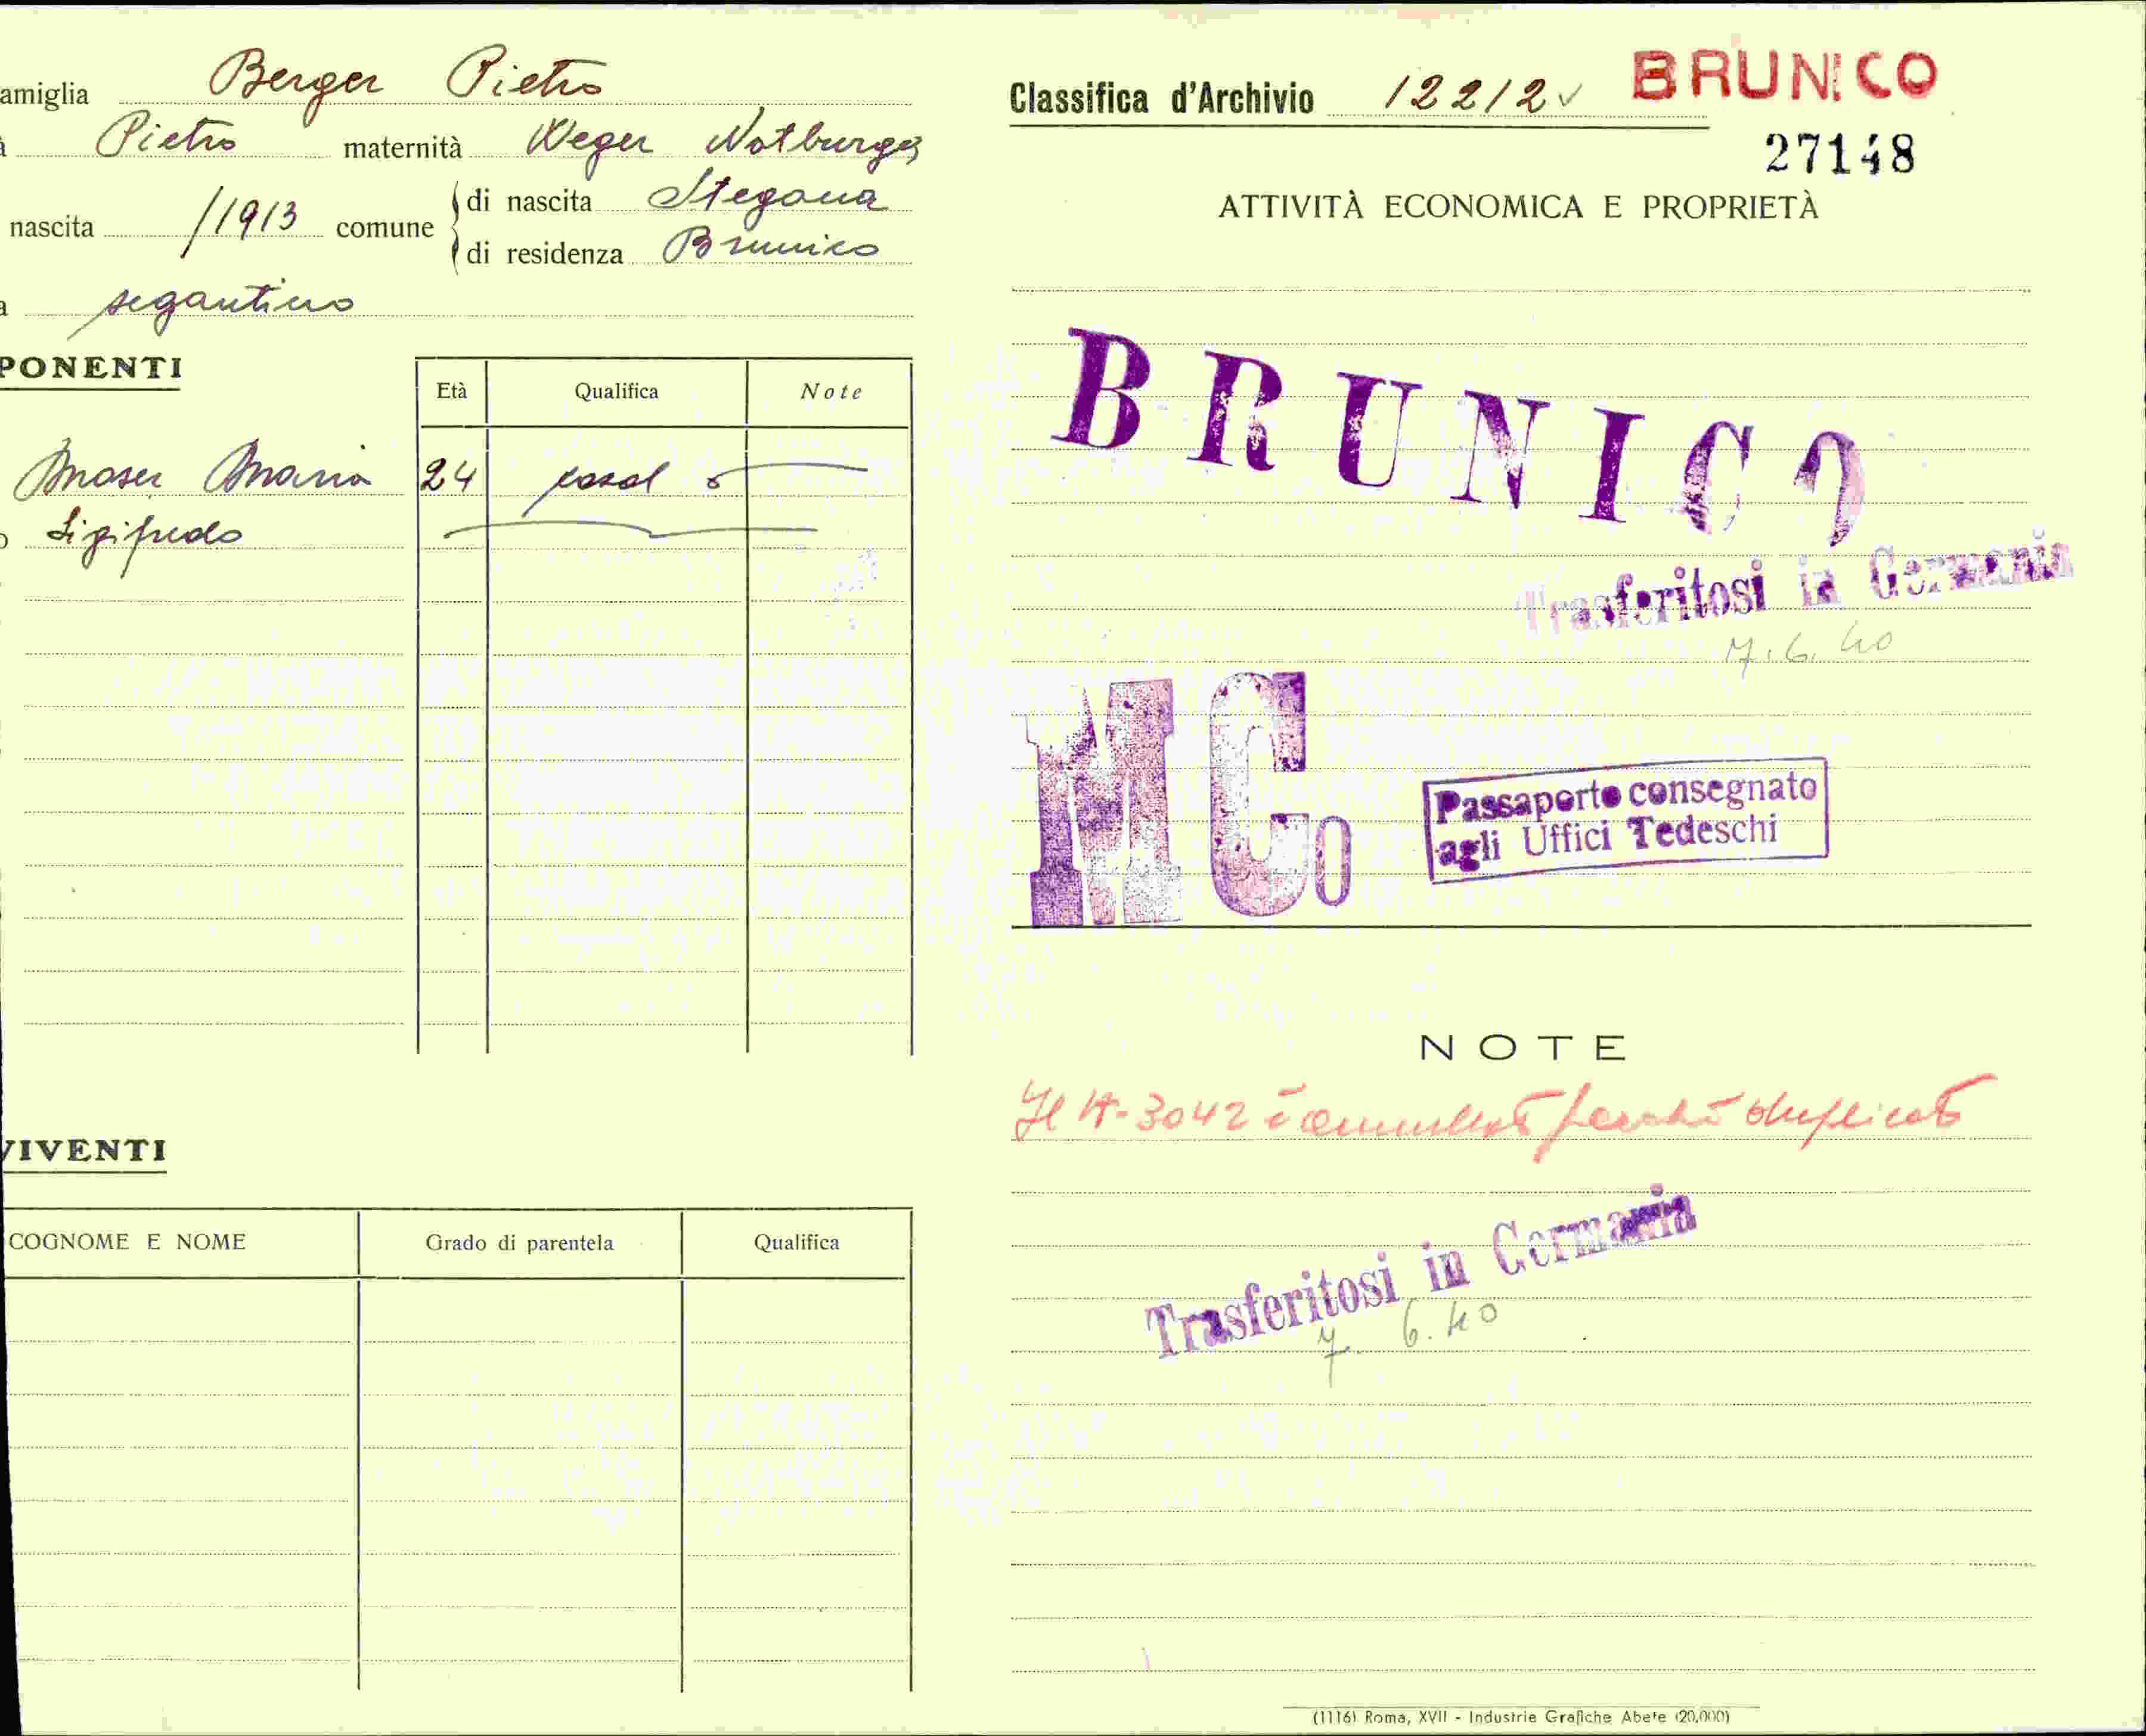 amiglia Berger Pietro
Pietro maternità Weger Notburga
nascita /1913 comune di nascita Stegona
di residenza Brunico
a segantino
PONENTI
Età Qualifica Note
Moser Maria 24 casal
o Sigifredo
VIVENTI
COGNOME E NOME Grado di parentela Qualifica
Classifica d'Archivio 122/2 BRUNICO
27148
ATTIVITÀ ECONOMICA E PROPRIETÀ
BRUNICO
Trasferitosi in Germania
7.6.40
MCo
Passaporto consegnato
agli Uffici Tedeschi
NOTE
Il A-3042 è annullato perché duplicato
Trasferitosi in Germania
7.6.40
(1116) Roma, XVII - Industrie Grafiche Abete (20,000)